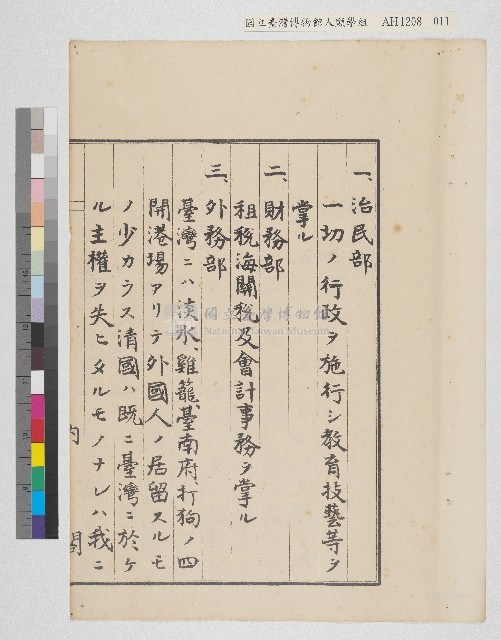 國立臺灣博物館人類學組 AH1208 011
一、治民部
一切ノ行政ヲ施行シ教育技藝等ヲ
掌ル
二、財務部
租税海關税及會計事務ヲ掌ル
三、外務部
臺灣ニハ淡水、雞籠、臺南府、打狗ノ四
開港場アリテ外國人ノ居留スルモ
ノ少カラス清國ハ既ニ臺灣ニ於ケ
ル主權ヲ失ヒタルモノナレハ我ニ
内閣
國立臺灣博物館
National Taiwan Museum